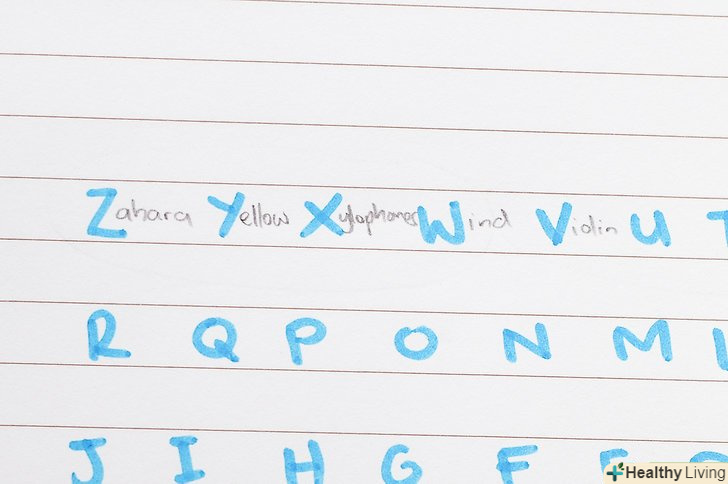 Zahara Yellow Xylophones Wind Violin U T
R Q P O N M
J I H G F
Healthy Living